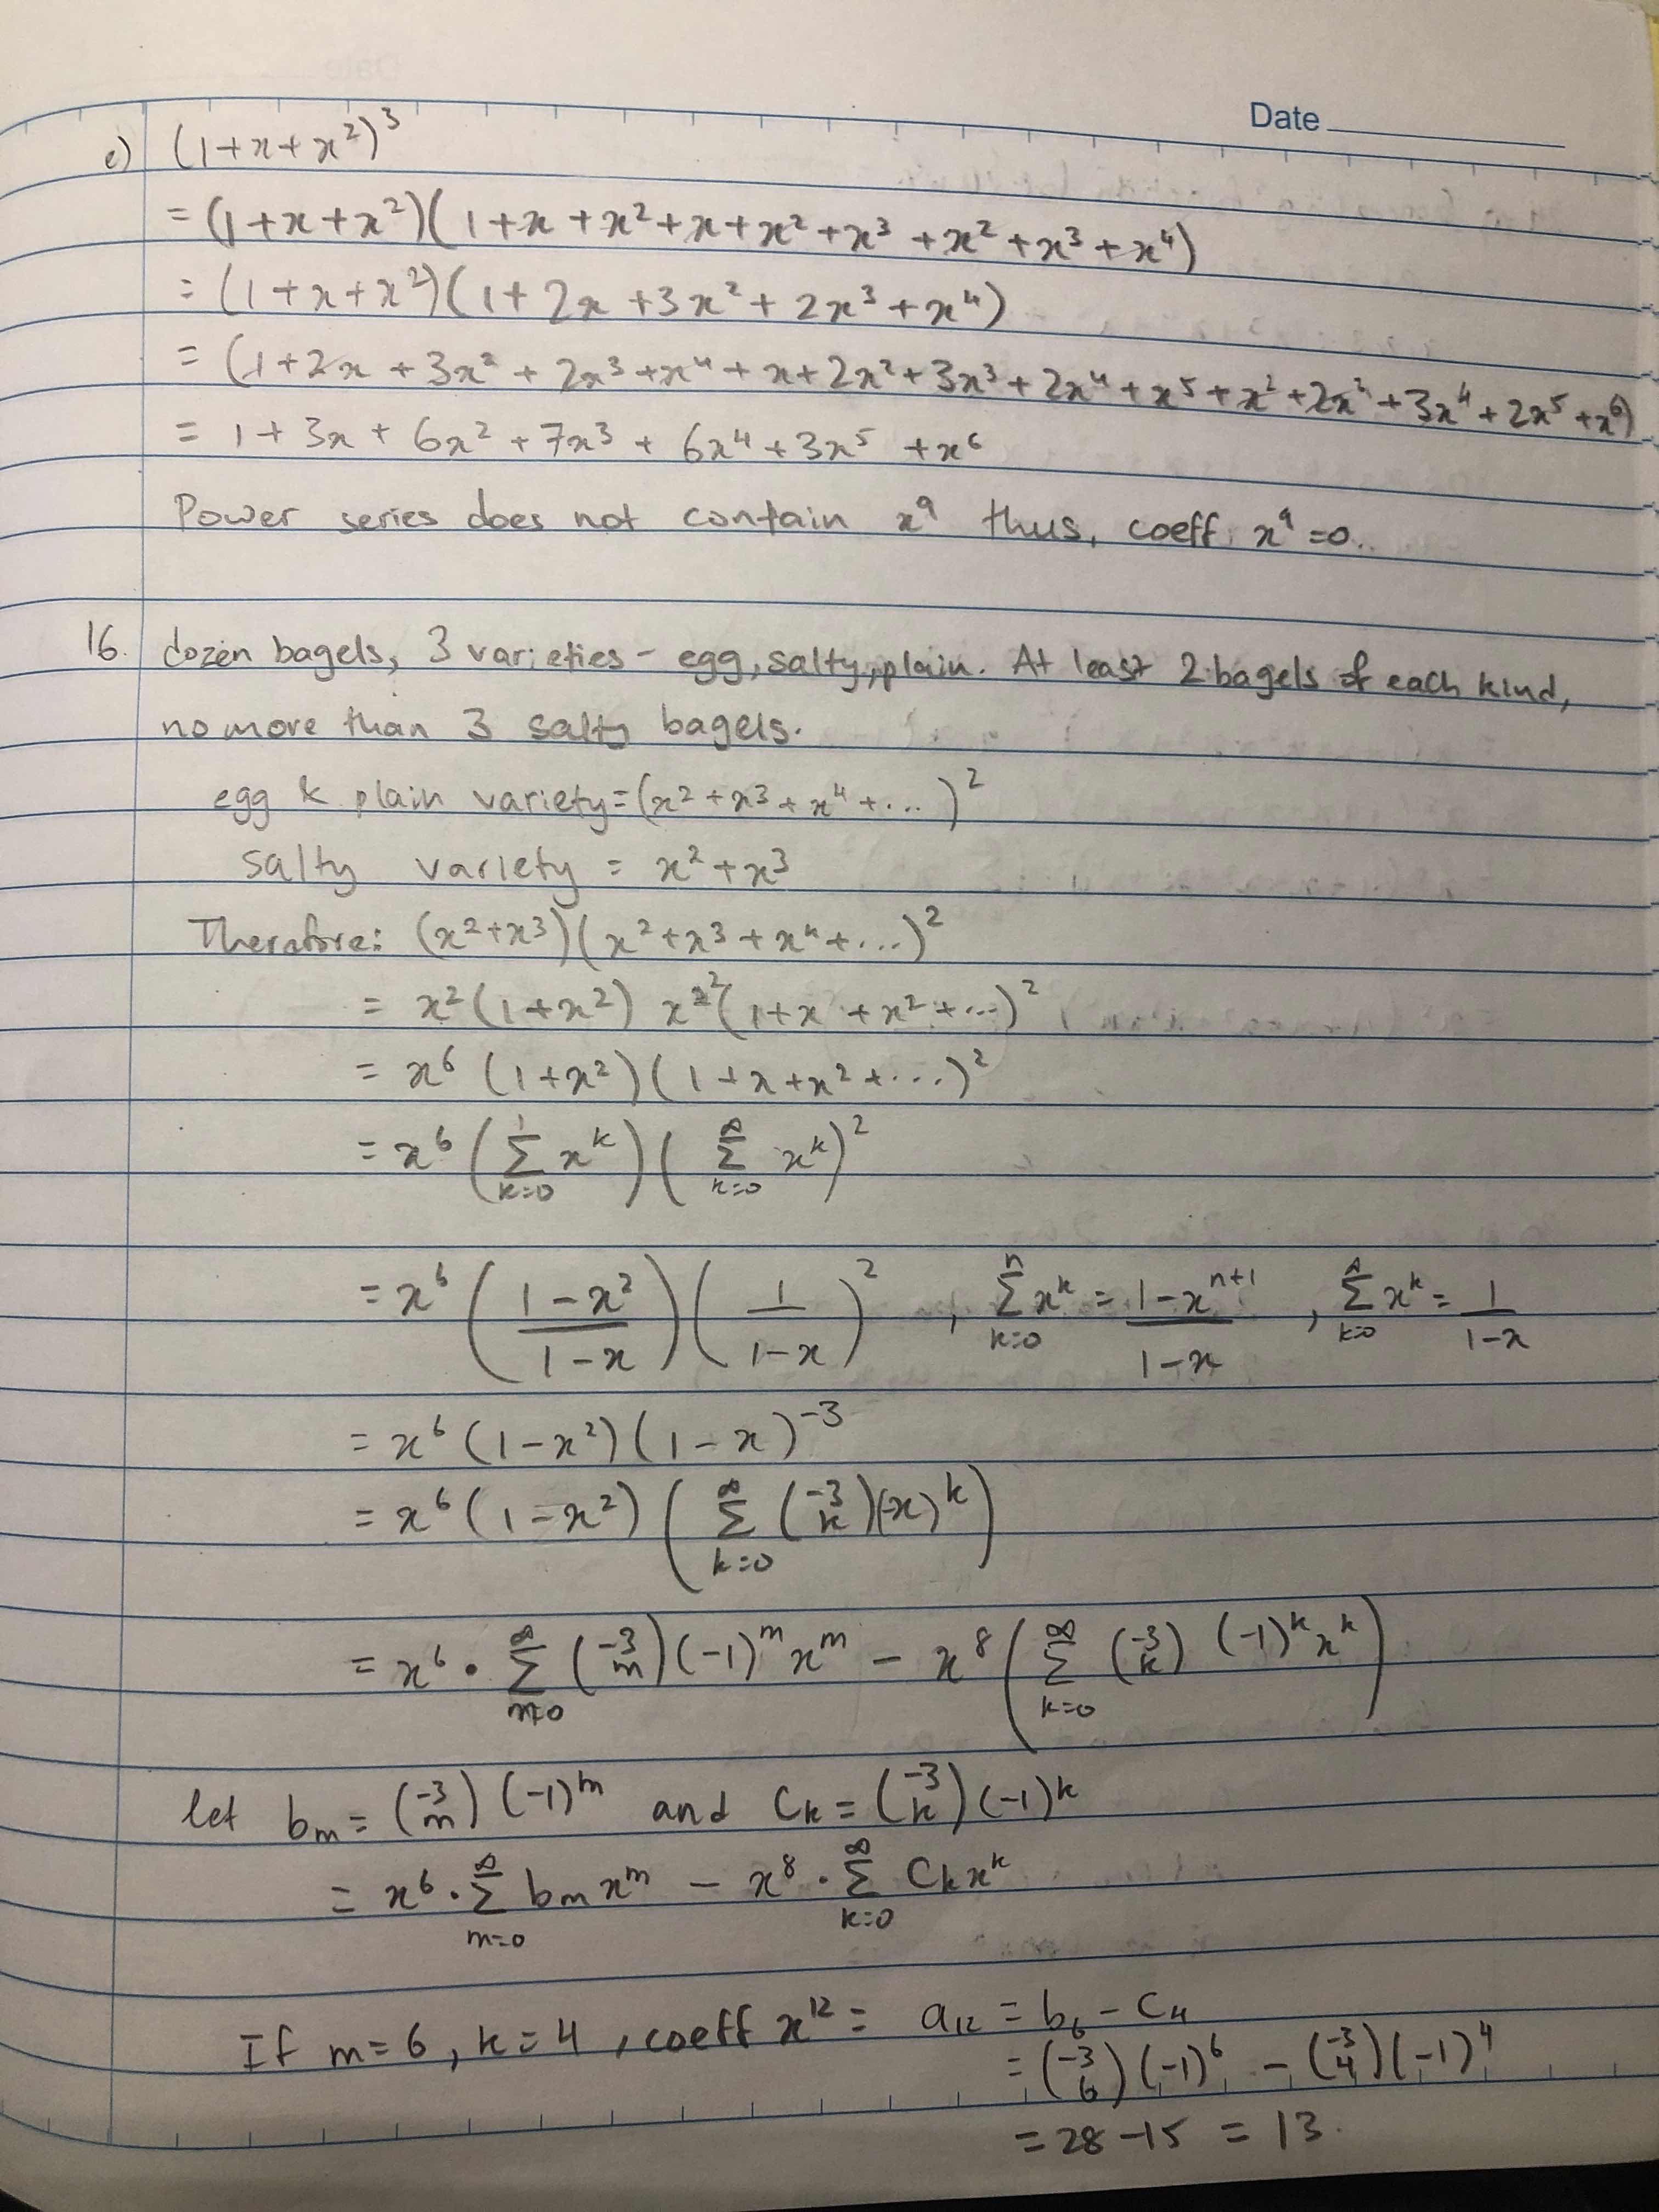 Date
e) (1+x+x²)³
= (1+x+x²)(1+x+x²+x+x²+x³+x²+x³+x⁴)
= (1+x+x²)(1+2x+3x²+2x³+x⁴)
= (1+2x+3x²+2x³+x⁴+x+2x²+3x³+2x⁴+x⁵+x²+2x³+3x⁴+2x⁵+x⁶)
= 1+3x+6x²+7x³+6x⁴+3x⁵+x⁶
Power series does not contain x⁹ thus, coeff. x⁹=0.
16. dozen bagels, 3 varieties - egg, salty, plain. At least 2 bagels of each kind,
no more than 3 salty bagels.
egg & plain variety=(x²+x³+x⁴+...)²
salty variety = x²+x³
Therefore: (x²+x³)(x²+x³+x⁴+...)²
= x²(1+x²) x²˙²(1+x+x²+...)²
= x⁶(1+x²)(1+x+x²+...)²
= x⁶(∑_{k=0}^{1} x^k)(∑_{k=0}^{∞} x^k)²
= x⁶((1-x²)/(1-x))(1/(1-x))² , ∑_{k=0}^{n} x^k = (1-x^{n+1})/(1-x) , ∑_{k=0}^{∞} x^k = 1/(1-x)
= x⁶(1-x²)(1-x)⁻³
= x⁶(1-x²)(∑_{k=0}^{∞} (-3 k)(-x)^k)
= x⁶ · ∑_{m=0}^{∞} (-3 m)(-1)^m x^m - x⁸(∑_{k=0}^{∞} (-3 k) (-1)^k x^k)
let b_m = (-3 m)(-1)^m and C_k = (-3 k)(-1)^k
= x⁶ · ∑_{m=0}^{∞} b_m x^m - x⁸ · ∑_{k=0}^{∞} C_k x^k
If m=6, k=4, coeff x¹² = a₁₂ = b₆ - C₄
= (-3 6)(-1)⁶ - (-3 4)(-1)⁴
= 28-15 = 13.